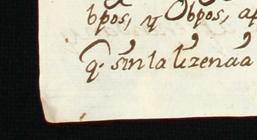 bpos, y Obpos, ap
q. sin la lizenaa